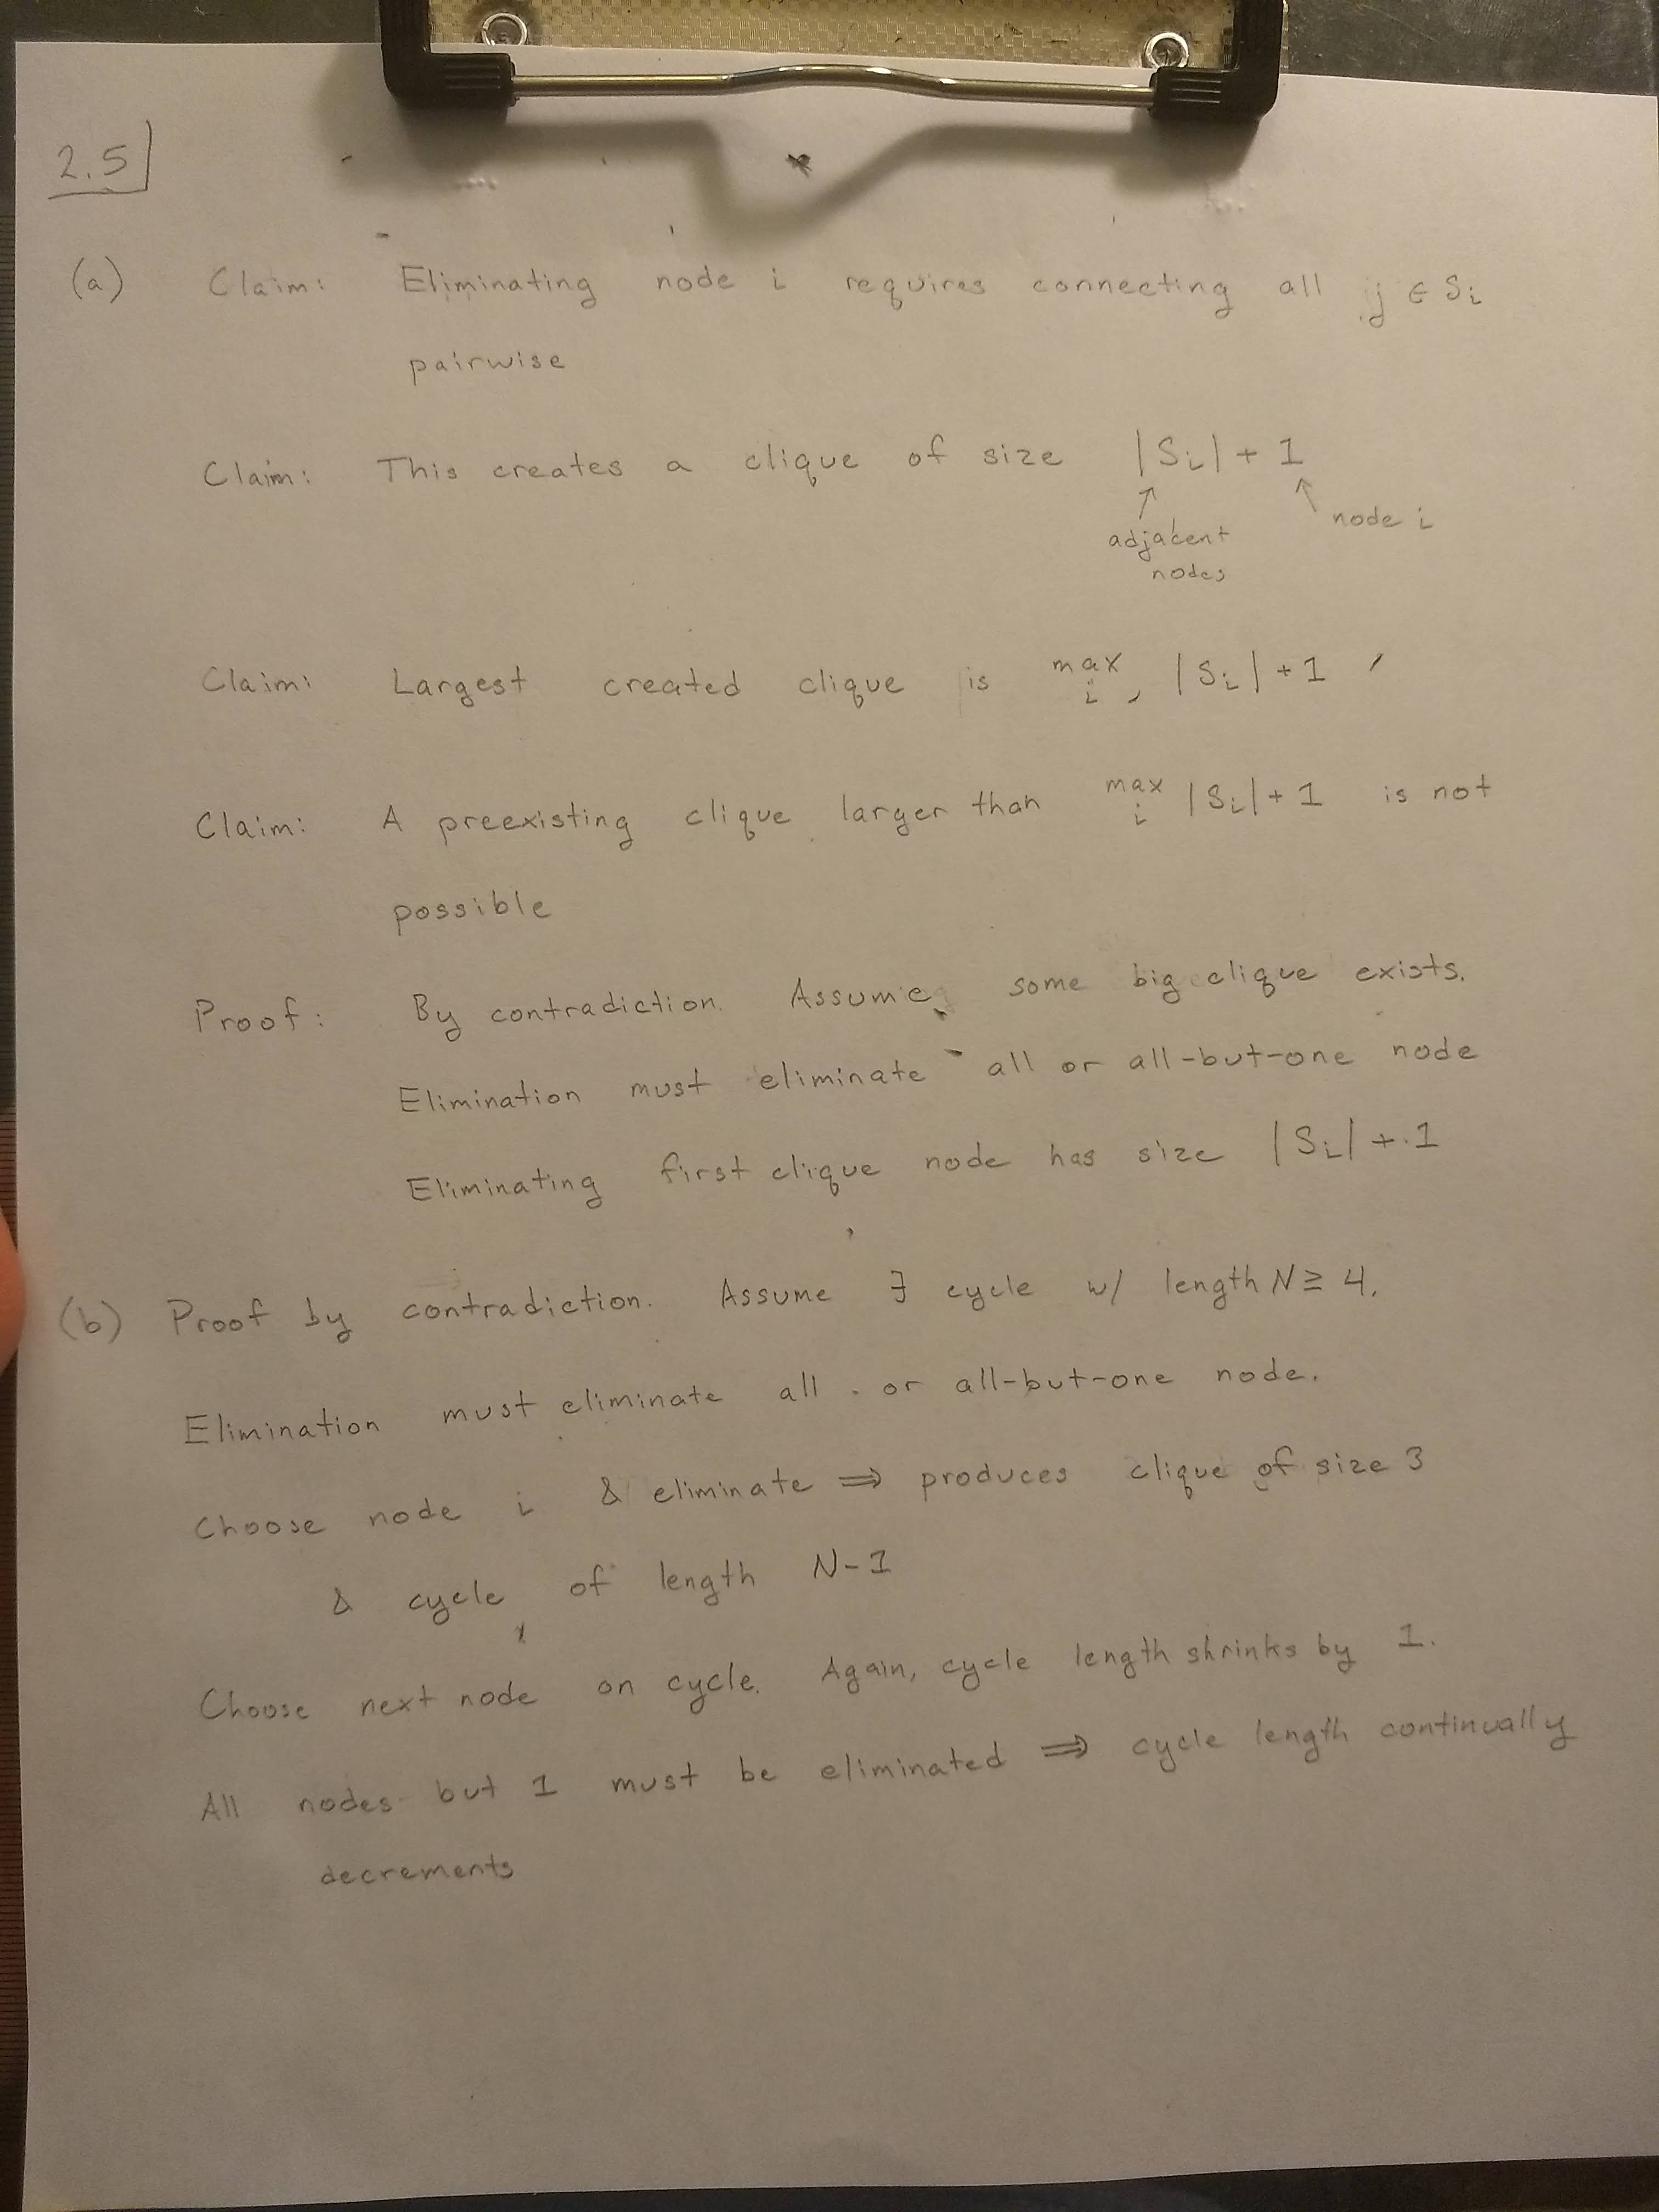 2.5
(a) Claim: Eliminating node i requires connecting all j ∈ Sᵢ
pairwise
Claim: This creates a clique of size |Sᵢ| + 1
↑ ↑ node i
adjacent
nodes
Claim: Largest created clique is max |Sᵢ| + 1
i
Claim: A preexisting clique larger than max |Sᵢ| + 1 is not
i
possible
Proof: By contradiction. Assume some big clique exists.
Elimination must eliminate all or all-but-one node
Eliminating first clique node has size |Sᵢ| + 1
(b) Proof by contradiction. Assume ∃ cycle w/ length N ≥ 4.
Elimination must eliminate all or all-but-one node.
Choose node i & eliminate ⇒ produces clique of size 3
& cycle of length N-1
Choose next node on cycle. Again, cycle length shrinks by 1.
All nodes but 1 must be eliminated ⇒ cycle length continually
decrements